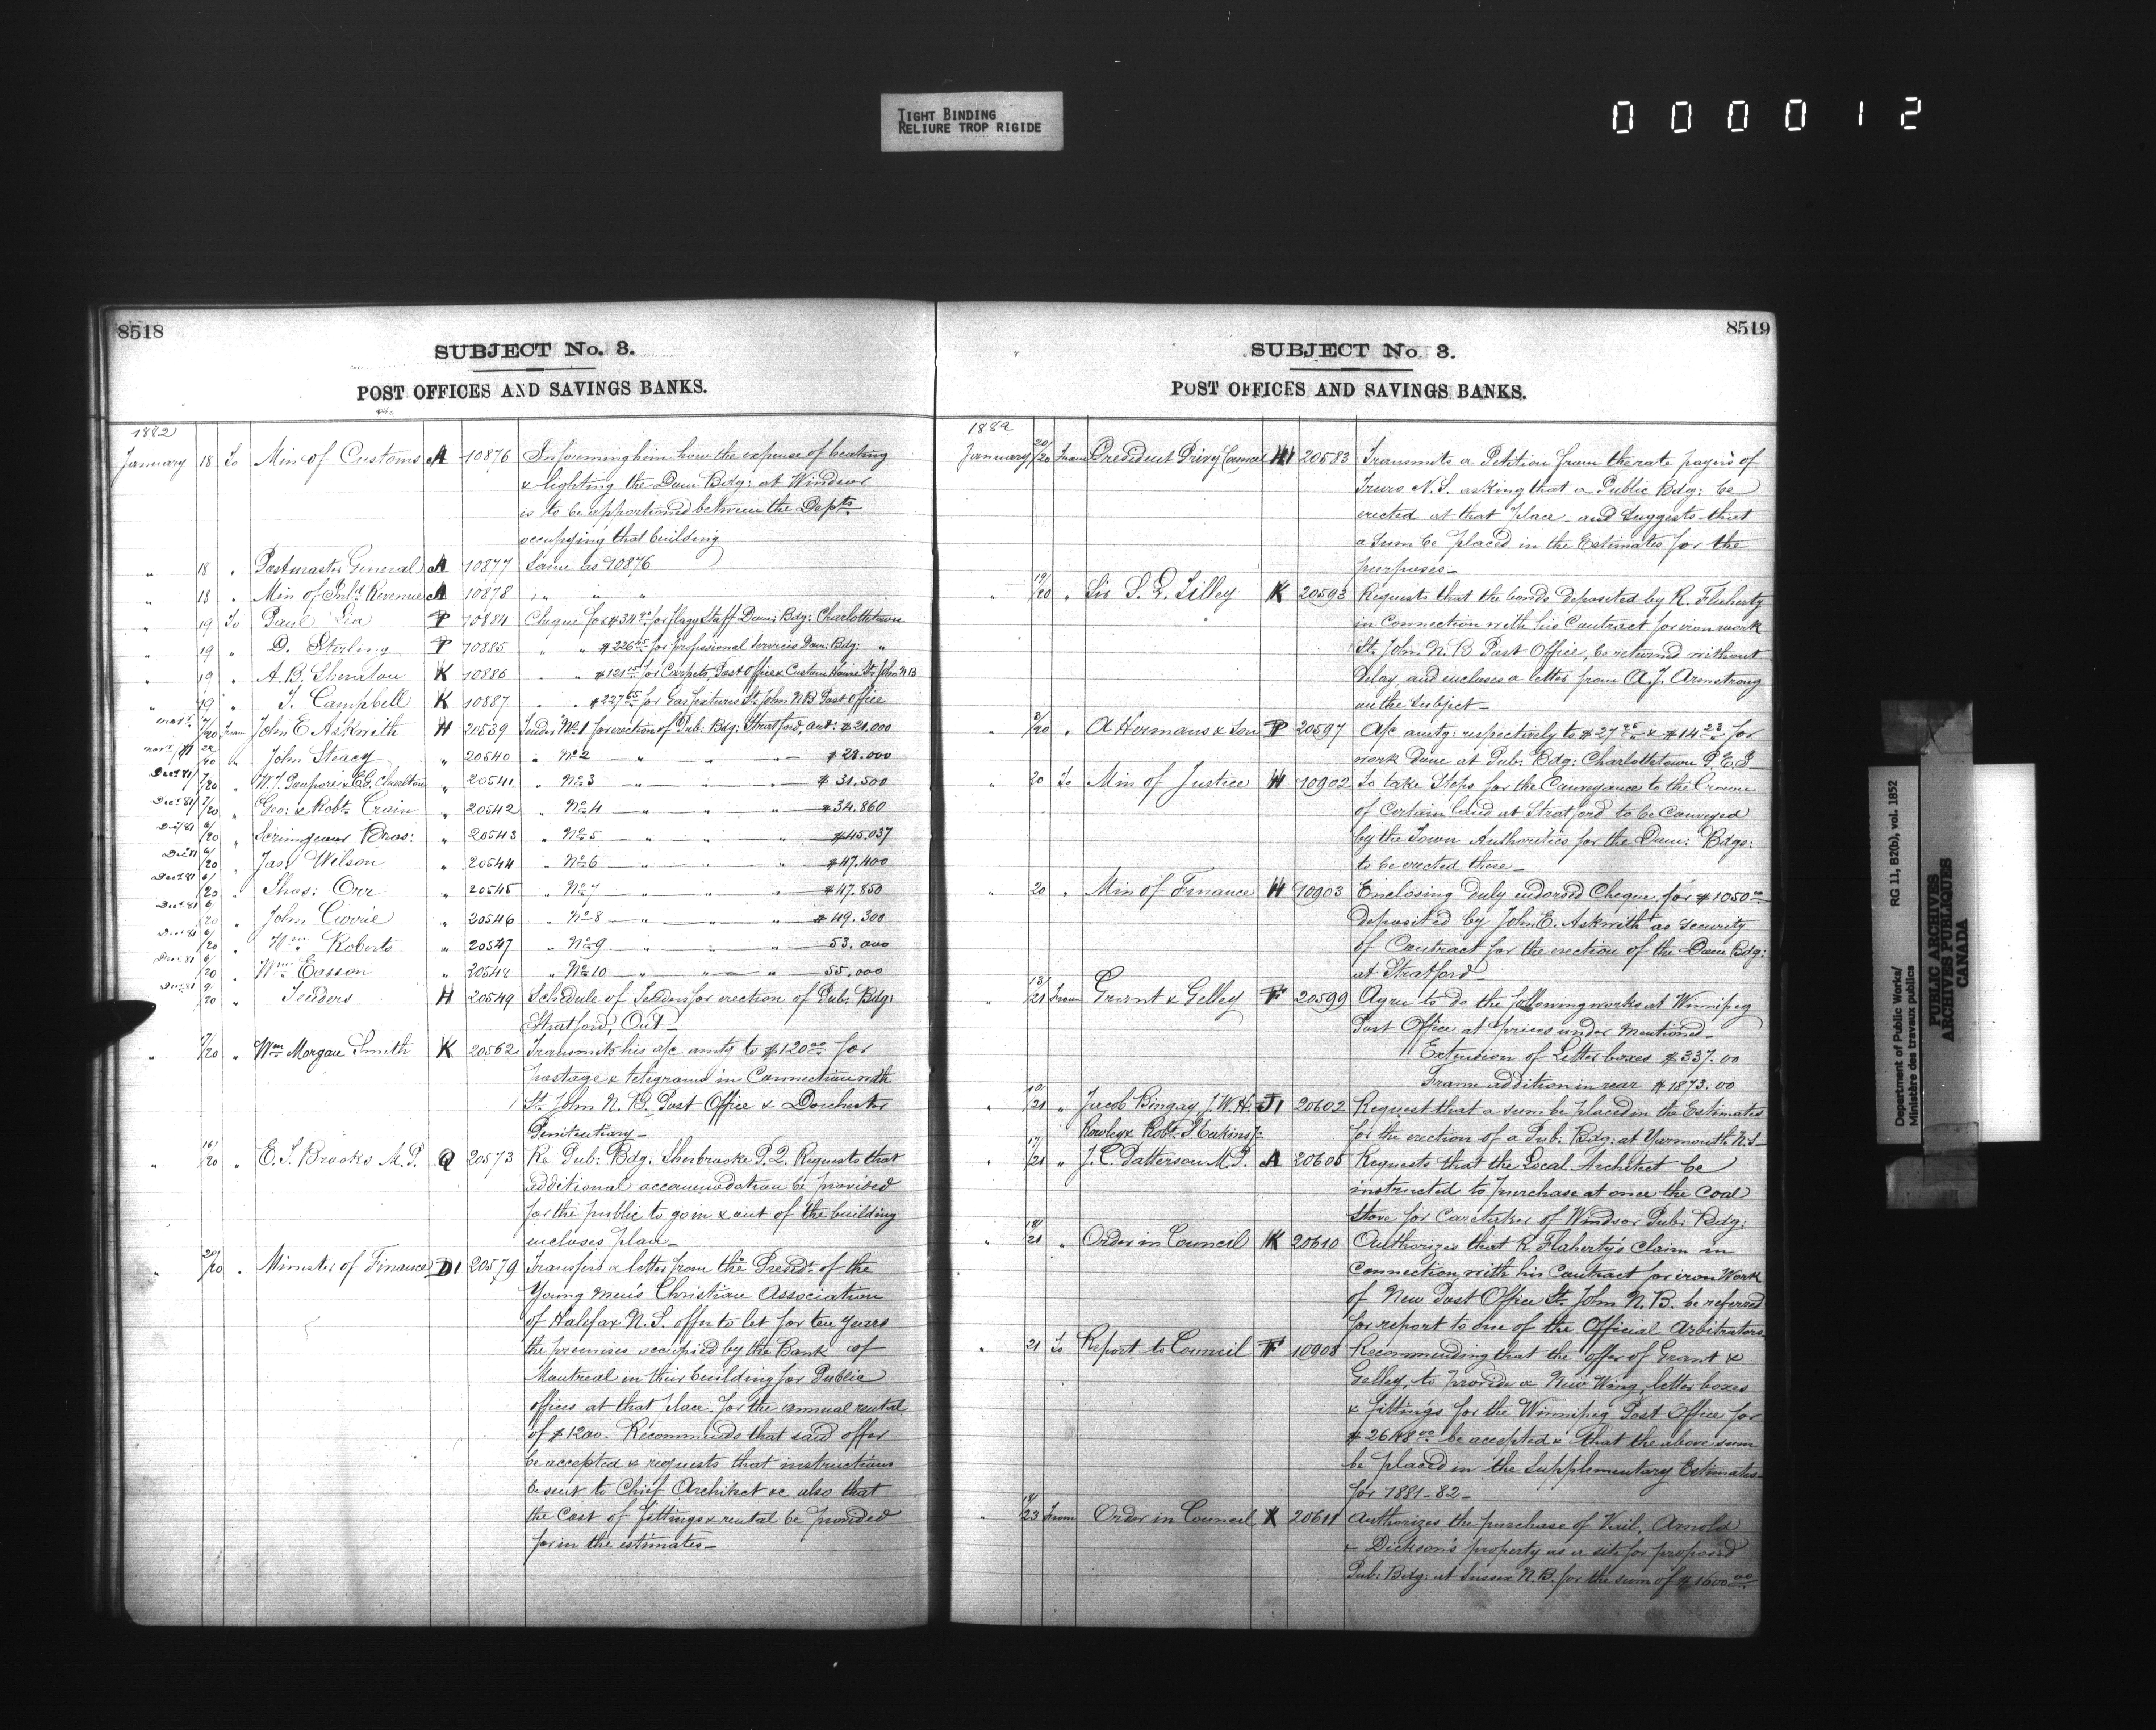 TIGHT BINDING
RELIURE TROP RIGIDE
000012
8518
SUBJECT No. 3.
POST OFFICES AND SAVINGS BANKS.
1882
January 18 To Min of Customs A 10876 Informing him how the expense of heating
& lighting the Dom Bdg: at Windsor
is to be apportioned between the Depts
occupying that building
" 18 " Postmaster General A 10877 Same as 10876
" 18 " Min of Inld Revenue A 10878 " " "
" 19 To Paul Lea P 10884 Cheque for $34 for flag Staff Dom: Bdg: Charlottetown
" 19 " D. Stirling P 10885 " " $226 for professional services Dom: Bdg: "
" 19 " A. B. Sheraton K 10886 " " $121 for Carpets, Post Office & Custom House St. John N B
" 19 " T. Campbell K 10887 " " $227 65 for Gas fixtures St. John NB Post Office
7/20 From John E Askwith H 20539 Tender No 1 for erection of Pub: Bdg: Stratford, amt: $21.000
John Steacy " 20540 " No 2 " " " $28.000
Dec 81 7/20 " " 20541 " No 3 " " " $31.500
Dec 81 7/20 " Geo: & Robt Crain " 20542 " No 4 " " " $34.860
Dec 81 6/20 " Scrimgeour Bros: " 20543 " No 5 " " " $45.037
Dec 81 6/20 " Jas Wilson " 20544 " No 6 " " " $47.400
Dec 81 6/20 " Thos: Orr " 20545 " No 7 " " " $47.850
Dec 81 6/20 " John Corrie " 20546 " No 8 " " " $49.300
Dec 81 6/20 " Wm Roberts " 20547 " No 9 " " " 53.000
Dec 81 6/20 " Wm Easson " 20548 " No 10 " " " 55.000
Dec 81 9/20 " Tenders H 20549 Schedule of Tenders for erection of Pub: Bdg:
Stratford, Ont_
" 7/20 " Wm Morgan Smith K 20562 Transmits his a/c amtg to $120 00 for
postage & telegrams in Connection with
St. John N. B. Post Office & Dorchester
Penitentiary_
" 16/20 " E. T. Brooks M.P. Q 20573 Re Pub: Bdg: Sherbrooke P.Q. Requests that
additional accommodation be provided
for the public to go in & out of the building
encloses plan_
" 20/20 " Minister of Finance D1 20579 Transfers a letter from the Presdt of the
Young Men's Christian Association
of Halifax N. S. offer to let for ten years
the premises occupied by the Bank of
Montreal in their building for Public
offices at that place for the annual rental
of $1200. Recommends that said offer
be accepted & requests that instructions
be sent to Chief Architect &c also that
the cost of fittings & rental be provided
for in the estimates_
8519
SUBJECT No. 3.
POST OFFICES AND SAVINGS BANKS.
1882
January 20/20 From President Privy Council H1 20583 Transmits a Petition from the rate payers of
Truro N.S. asking that a Public Bdg: be
erected at that place_ and suggests that
a sum be placed in the Estimates for the
purposes_
" 19/20 " Sir S. L. Tilley K 20593 Requests that the bonds deposited by R. Flaherty
in Connection with his Contract for iron work
St. John N. B Post Office, be returned without
delay, and encloses a letter from A. J. Armstrong
on the subject_
" 3/20 " A Hermans & Son P 20597 A/c amtg: respectively to $27 & $14 23 for
work done at Pub: Bdg: Charlottetown P. E. I
" 20 To Min of Justice H 10902 To take steps for the Conveyance to the Crown
of Certain land at Stratford to be Conveyed
by the Town Authorities for the Dom: Bdgs:
to be erected there_
" 20 " Min of Finance H 10903 Enclosing duly endorsed Cheque for $1050 00
deposited by John E. Askwith as security
of Contract for the erection of the Dom Bdg:
at Stratford_
" 13/21 From Grant & Gelley F 20599 Agree to do the following works at Winnipeg
Post Office at prices under mentioned_
Extension of Letter boxes $337.00
Frame addition in rear $1873.00
" 10/21 " Jacob Bingay, J. W. H. J1 20602 Request that a sum be placed in the Estimates
Rowley & Robt. S. Eakins Jr for the erection of a Pub: Bdg: at Yarmouth N.S_
" 17/21 " J. C. Patterson M.P. A 20605 Requests that the Local Architect be
instructed to purchase at once the Coal
Stove for Caretaker of Windsor Pub: Bdg:
" 18/21 " Order in Council K 20610 Authorizes that R. Flaherty's claim in
connection with his Contract for iron Work
of New Post Office St. John N. B. be referred
for report to one of the Official Arbitrators
" 21 To Report to Council F 10908 Recommending that the offer of Grant &
Gelley, to provide a New Wing, letter boxes
& fittings for the Winnipeg Post Office for
$ 2648 00 be accepted & that the above sum
be placed in the Supplementary Estimates
for 1881-82_
" 18/23 From Order in Council X 20611 Authorizes the purchase of Vail, Arnold
& Dickson's property as a site for proposed
Pub: Bdg: at Sussex N.B. for the sum of $1600 00
Department of Public Works/ RG 11, B2(b), vol. 1852
Ministère des travaux publics
PUBLIC ARCHIVES
ARCHIVES PUBLIQUES
CANADA